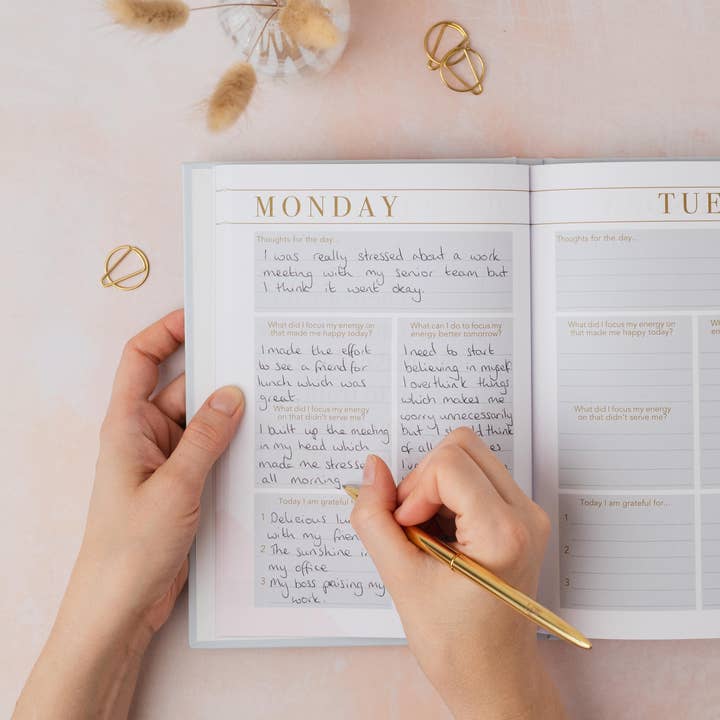 MONDAY
Thoughts for the day...
I was really stressed about a work
meeting with my senior team but
I think it went okay.
What did I focus my energy on
that made me happy today?
I made the effort
to see a friend for
lunch which was
great.
What did I focus my energy
on that didn't serve me?
I built up the meeting
in my head which
made me stressed
all morning.
What can I do to focus my
energy better tomorrow?
I need to start
believing in myself.
I overthink things
which makes me
worry unnecessarily
but I should think
of all
Today I am grateful
1 Delicious
with my
2 The sunshine
my office
3 my boss praising my
work.
TUE
Thoughts for the day...
What did I focus my energy on
that made me happy today?
What did I focus my energy
on that didn't serve me?
Today I am grateful for...
1
2
3